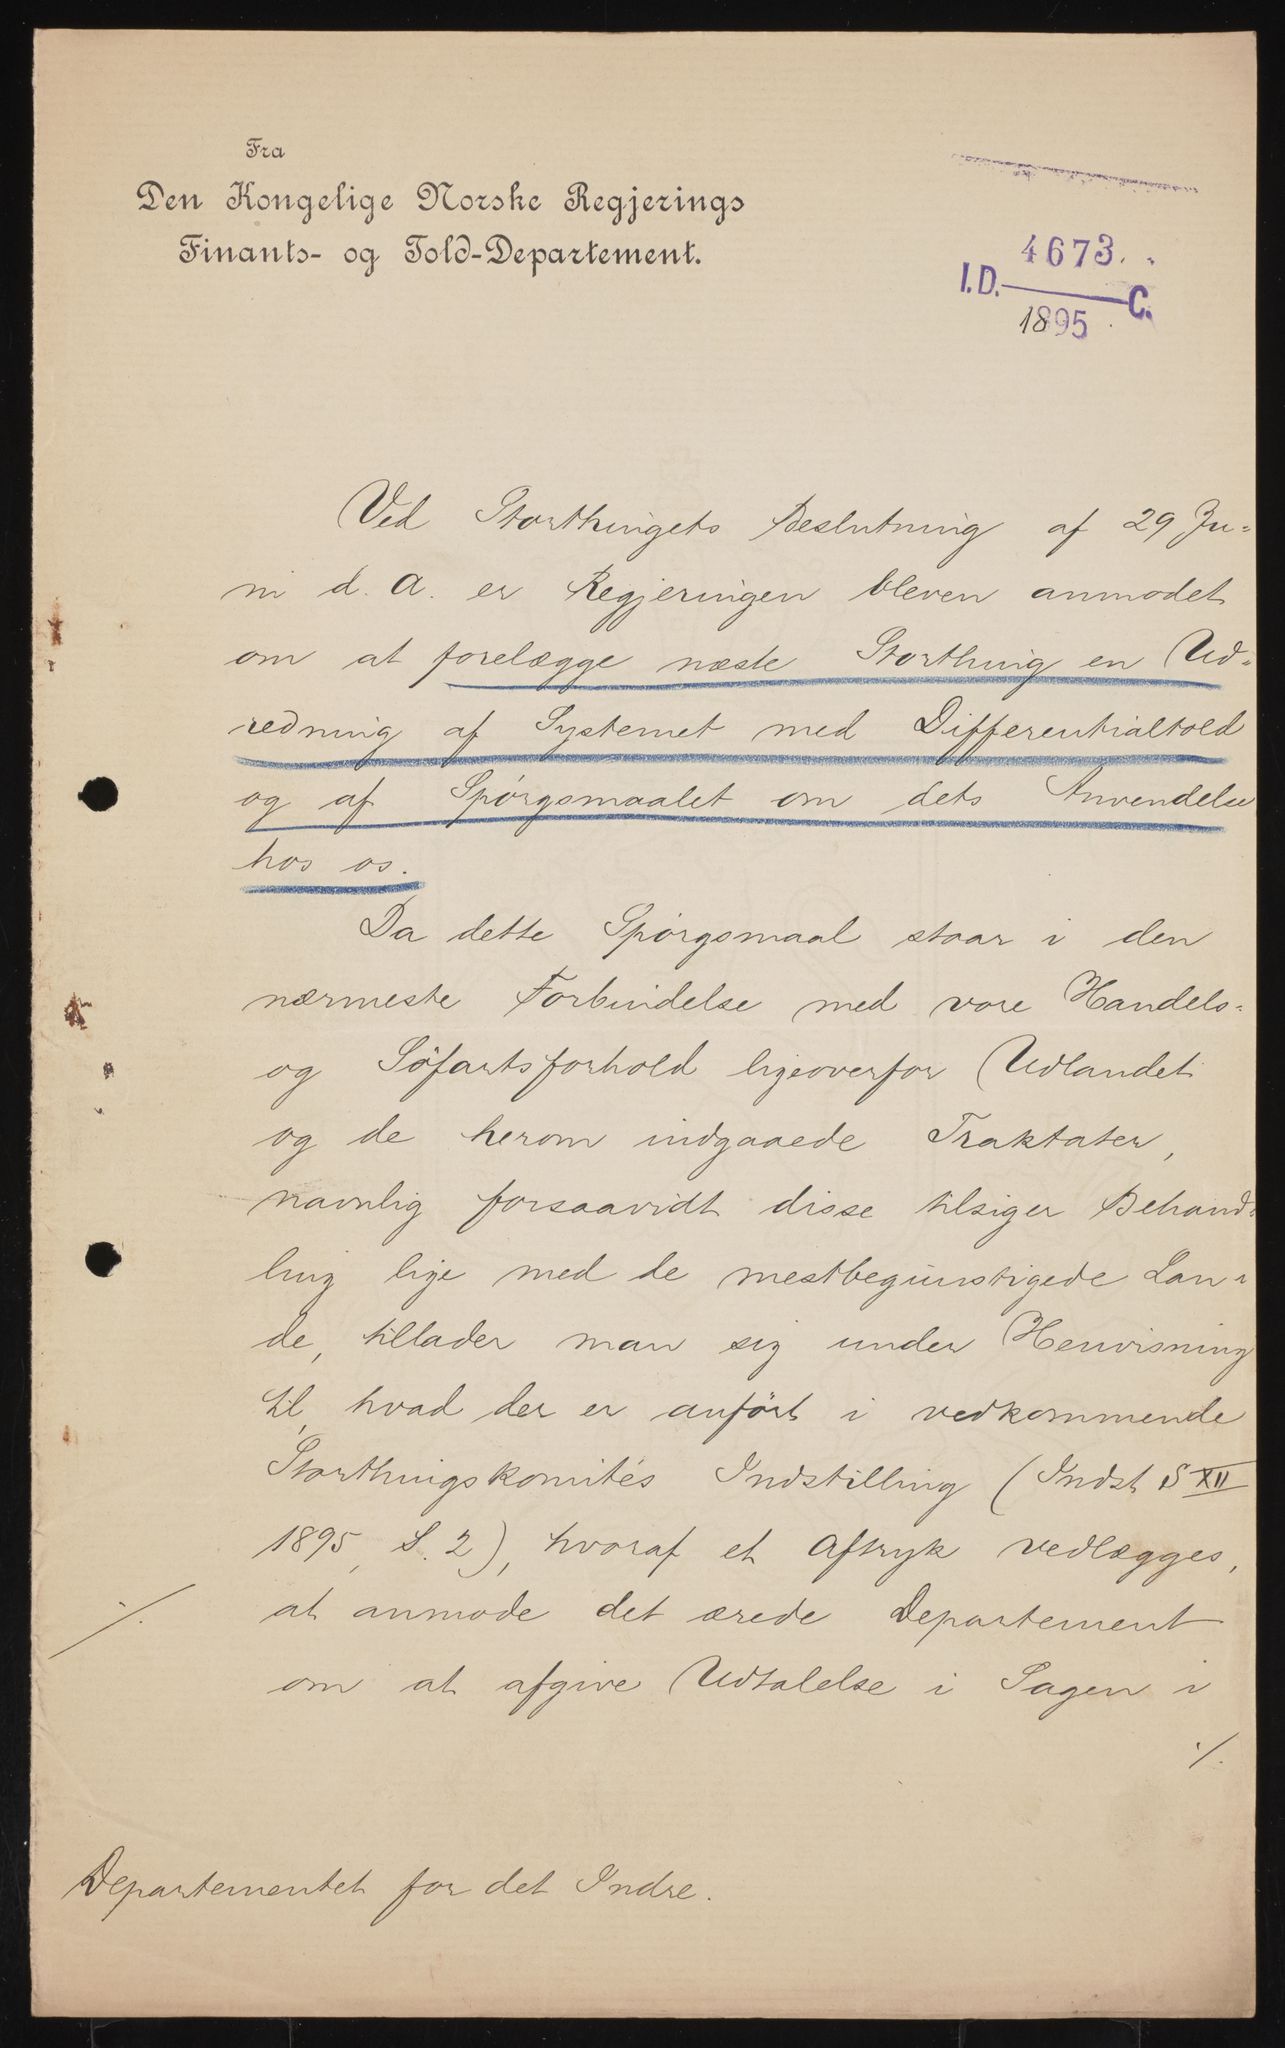 Fra
Den Kongelige Norske Regjerings
Finants- og Told-Departement.
4673.
I.D. C.
1895
Ved Storthingets Beslutning af 29 Ju-
ni d. A. er Regjeringen bleven anmodet
om at forelægge næste Storthing en Ud-
redning af Systemet med Differentialtold
og af Spörgsmaalet om dets Anvendelse
hos os.
Da dette Spörgsmaal staar i den
nærmeste Forbindelse med vore Handels-
og Söfartsforhold ligeoverfor Udlandet
og de herom indgaaede Traktater,
navnlig forsaavidt disse tilsiger Behand-
ling lige med de mestbegunstigede Lan-
de, tillader man sig under Henvisning
til, hvad der er anfört i vedkommende
Storthingskomités Indstilling (Indst S XII
1895, S. 2), hvoraf et Aftryk vedlægges,
./. at anmode det ærede Departement
om at afgive Udtalelse i Sagen i
./.
Departementet for det Indre.